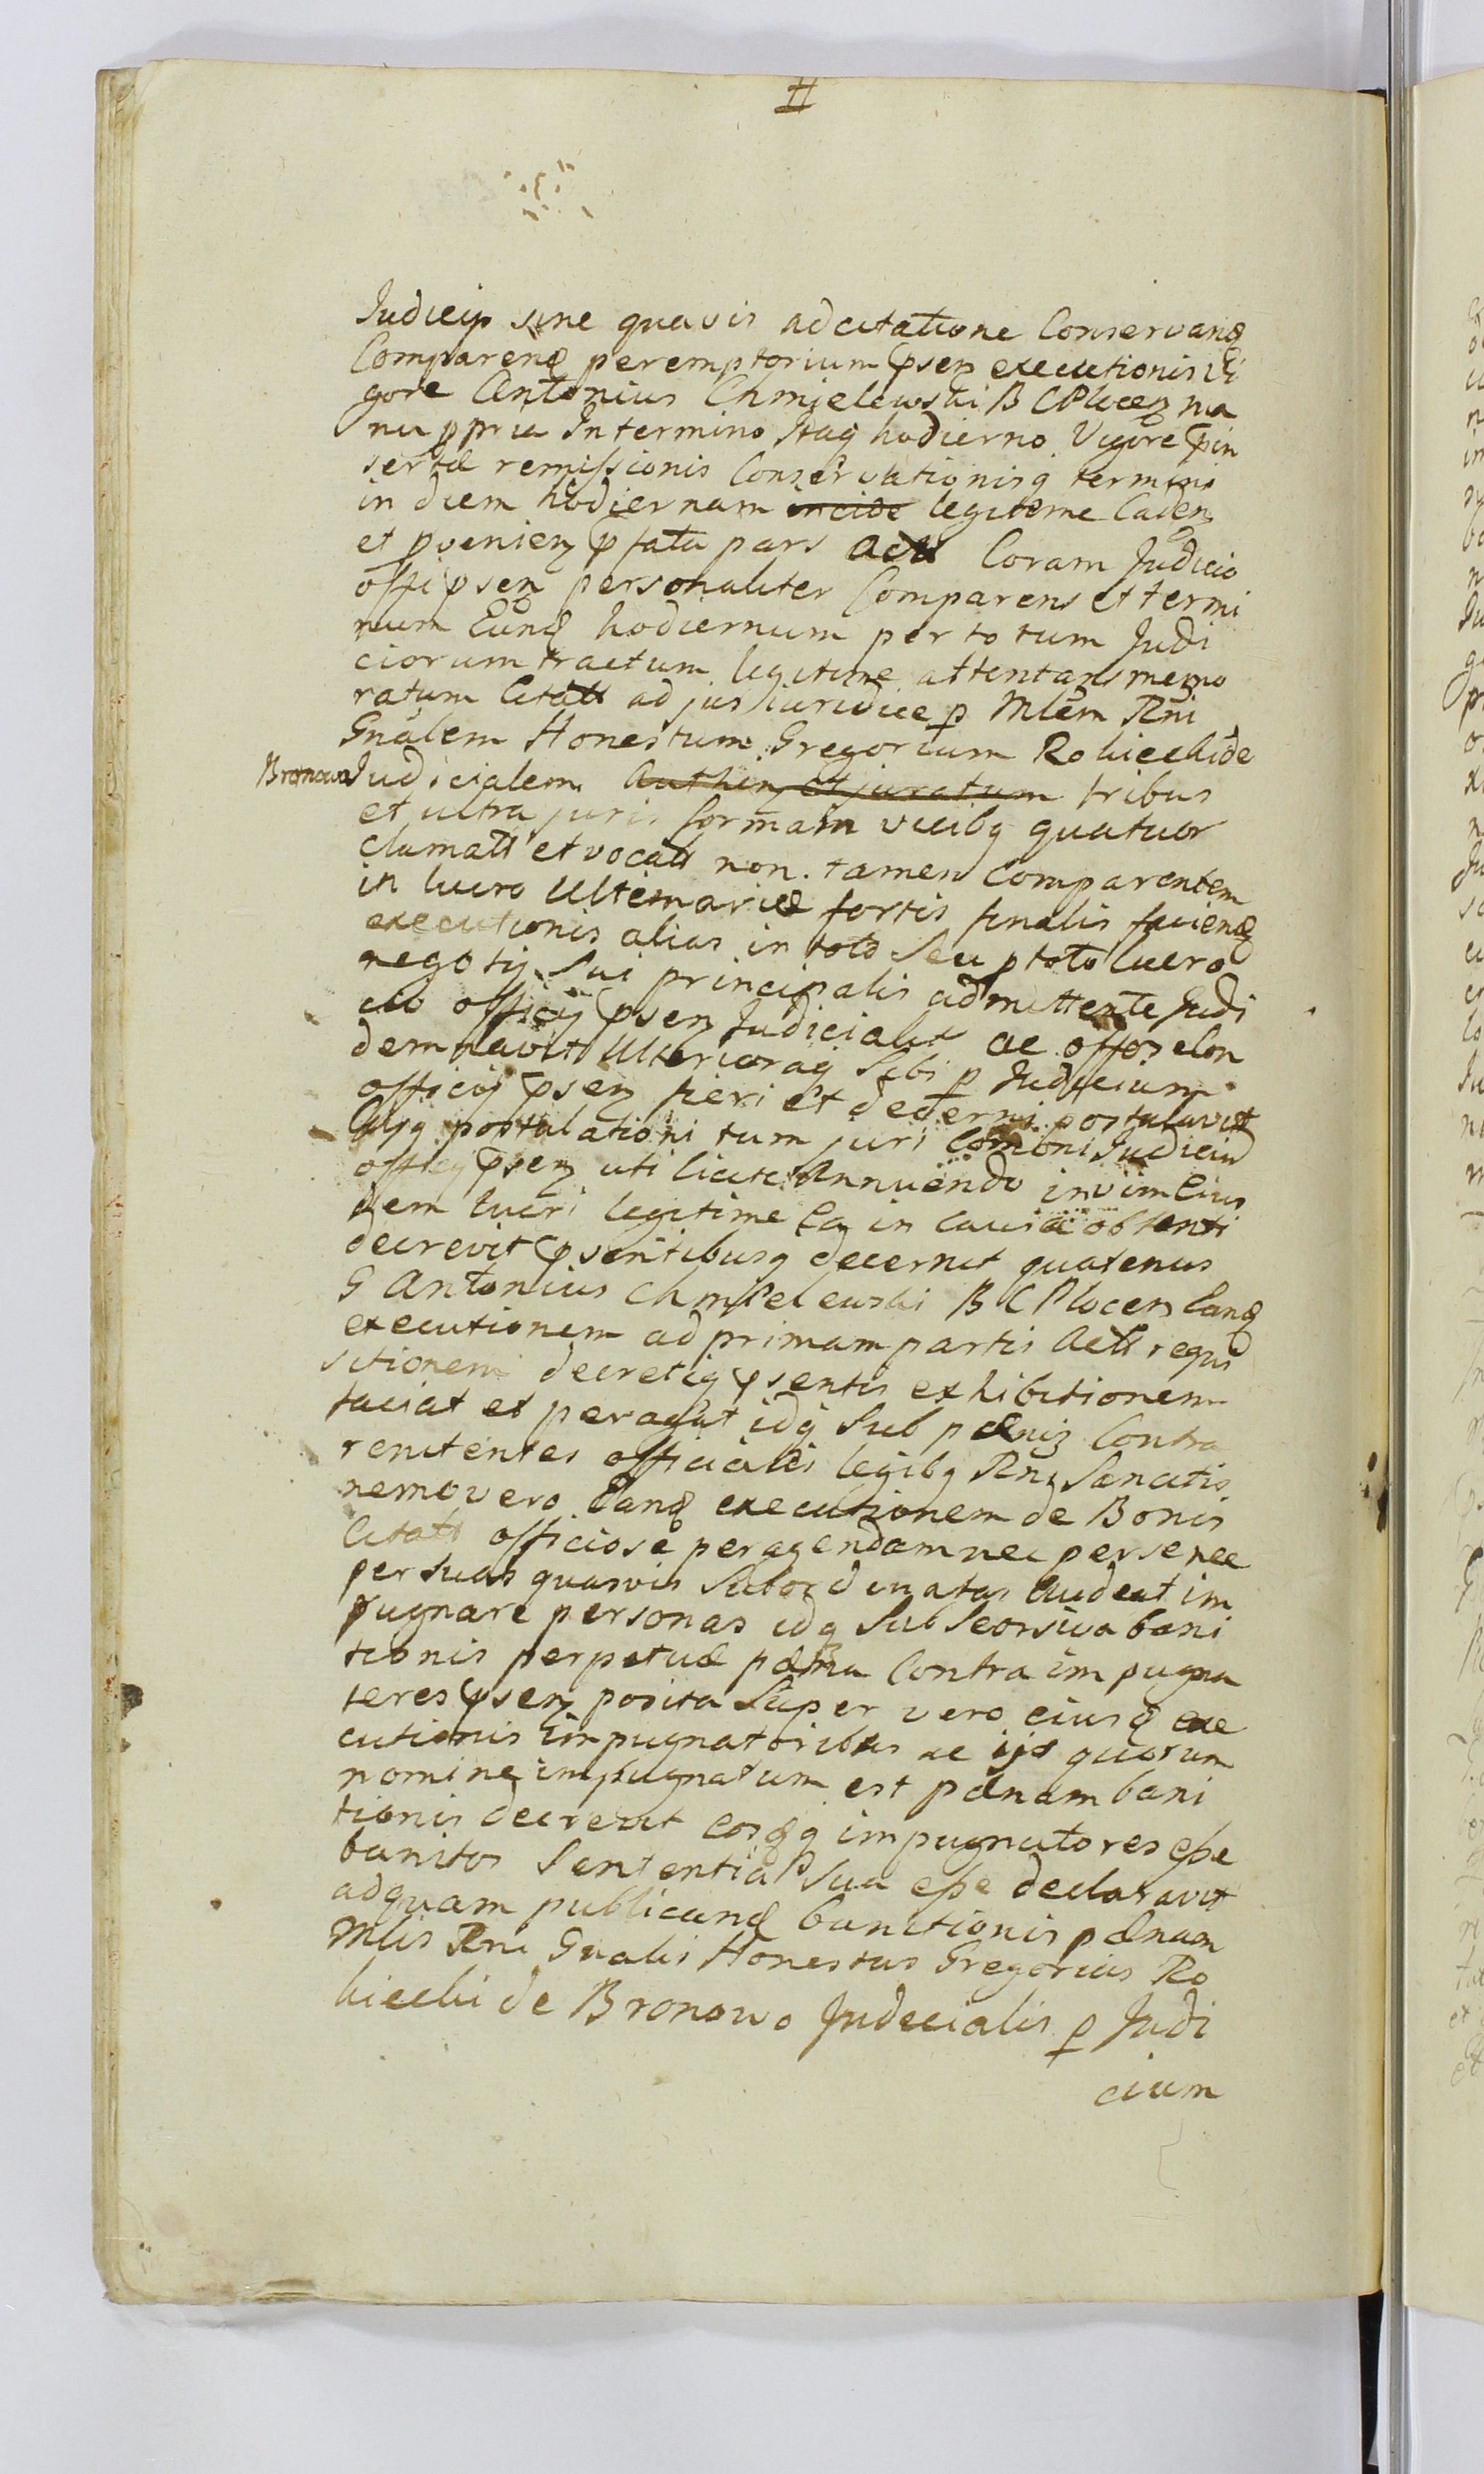 Judicijs sine quavis adcitatione Conservand
Comparend peremptorium psen executionis Vi
gore Antonius Chmielewski B C Plocen ma
nu ppria In termino Itaq hodierno Vigore p in
sertæ remissionis Conservationisq termini
in diem hodiernam incide legitime Caden
et pvenien pfata pars Actt Coram Judicio
offi psen personaliter Comparens et termi
num Eund hodiernum per totum Judi
ciorum tractum legitime attentans memo
ratum Citatt ad jus juridice p Mlem Rni
Gnalem Honestum Gregorium Rokicckide
Bronowo Judicialem Authen et juratum tribus
et ultra juris formam vicibq quatuor
clamatt et vocatt non tamen Comparentem
in lucro Ultimariæ fortis finalis faciend
executionis alias in toto Seu p toto lucro
negotij Sui principalis admittente Judi
cio officij psen Judicialit ac offose Con
demnavit Ulterioraq Sibi p Judicium
officij psen fieri et decerni postulavit
Cujq postulationi tum juri Comoni Judiciu
officij psen uti licite Annuendo in vim Eius
dem lucri legitime Eaq in causa obtenti
decrevit psentibusq decernit quatenus
G Antonius Chmielewski B C Plocen Eand
executionem ad primam partis Actt requi
sitionem decretiq psentis exhibitionem
faciat et peragat idq Sub pænis Contra
renitentes officiales legibq Rni Sancitis
nemo vero Eand executionem de Bonis
Citatt officiose peragendam nec per se nec
per suas quasvis Subordinatas Audeat im
pugnare personas idq Sub Seorsiva bani
tionis perpetuæ pæna Contra impugna
tores psen posita Super vero eiusd exe
cutionis impugnatoribus ac ijs quorum
nomine impugnatum est pænam bani
tionis decrevit eosdq impugnatores esse
banitos Sententia Sua esse declaravit
ad quam publicand banitionis pænam
Mlis Rni Gnalis Honestus Gregorius Ro
kiccki de Bronowo Judicialis p Judi
cium